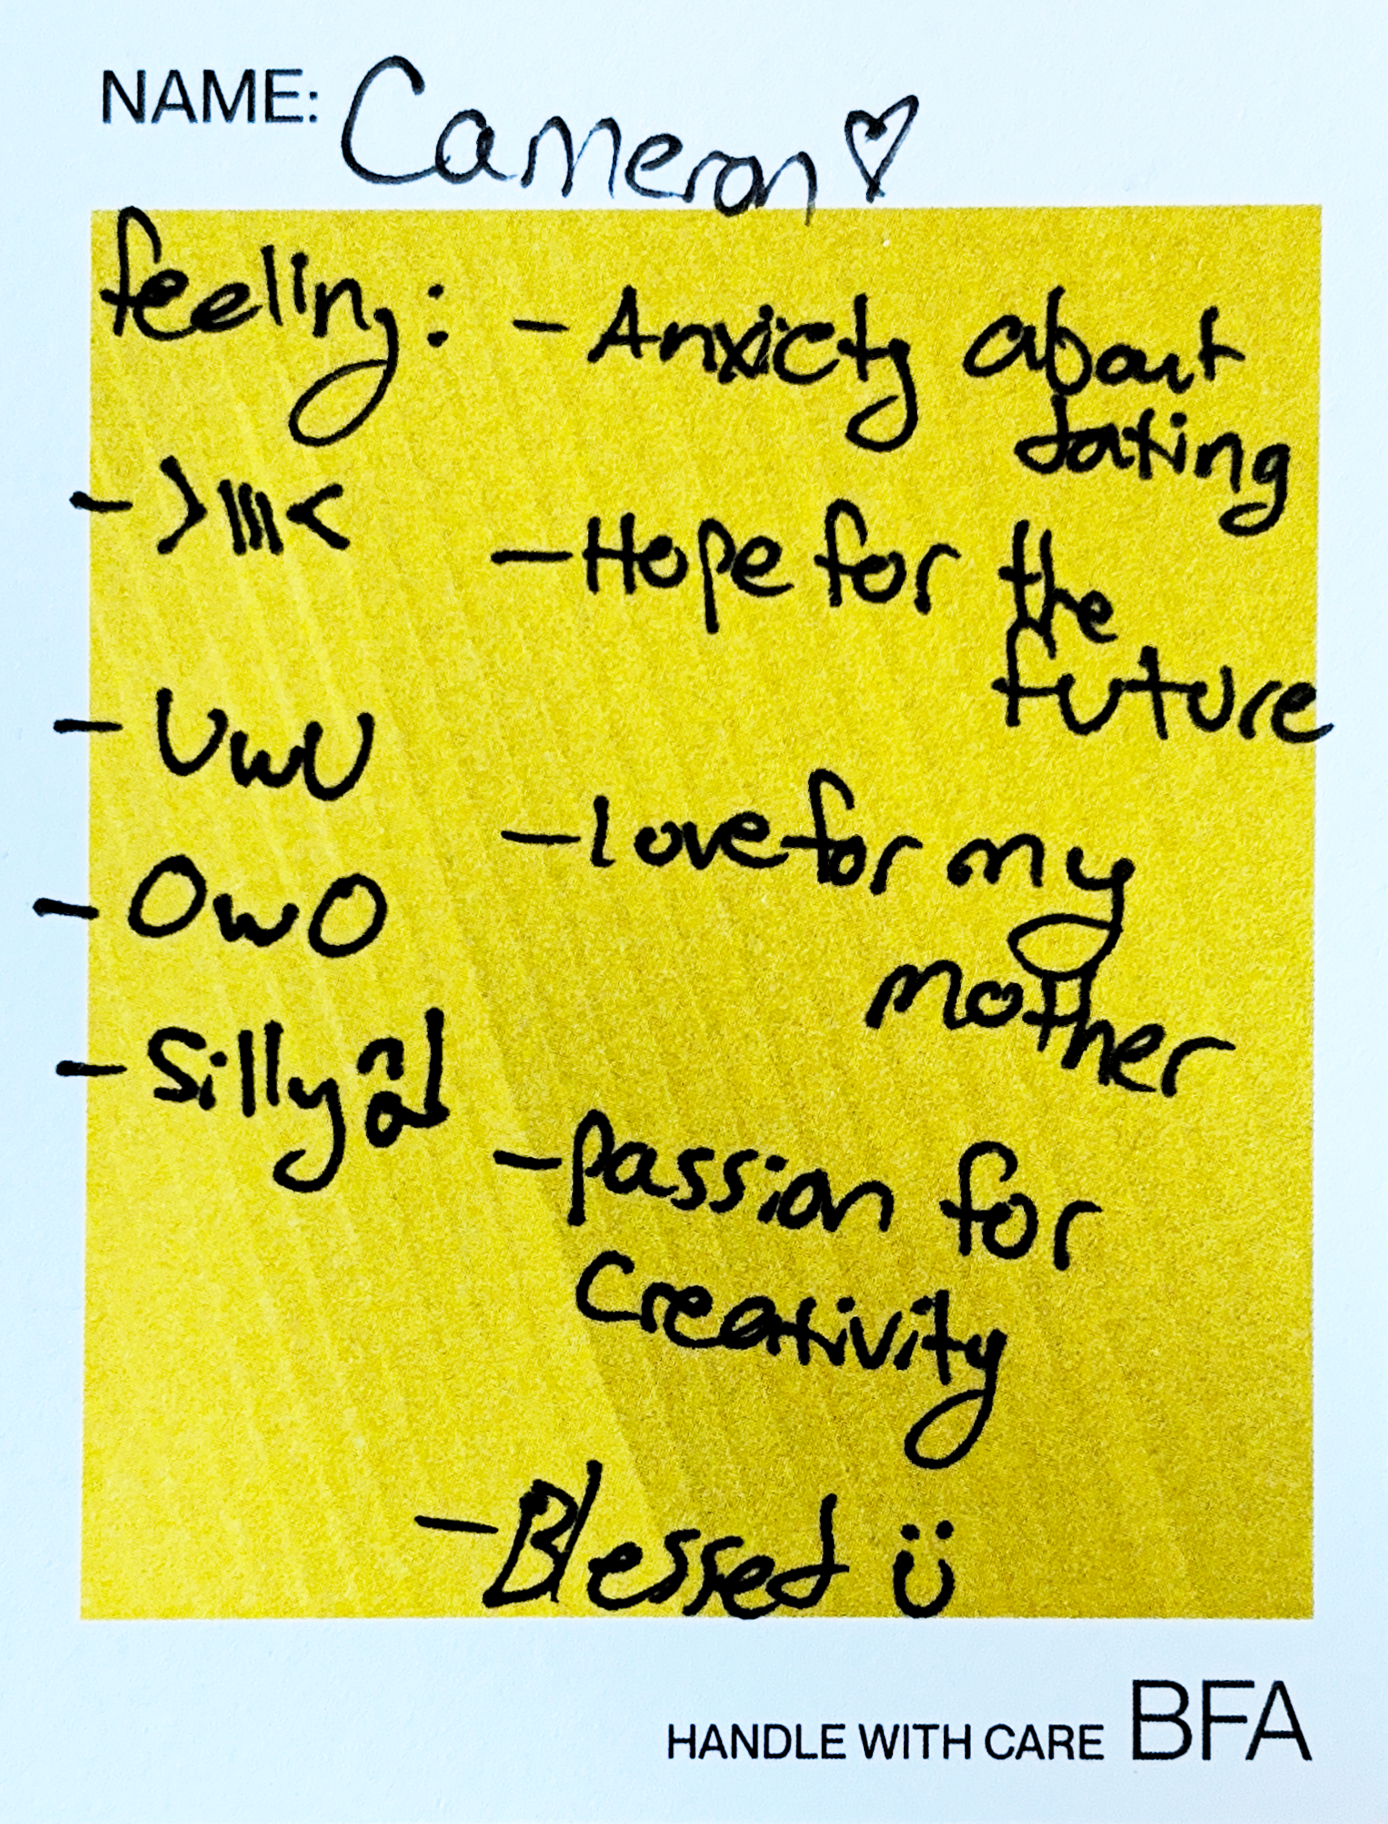 NAME: Cameron ♡
feeling:
- >|||<
- UwU
- OwO
- Silly
- Anxiety about
dating
- Hope for the
future
- love for my
mother
- passion for
Creativity
- Blessed ü
HANDLE WITH CARE BFA